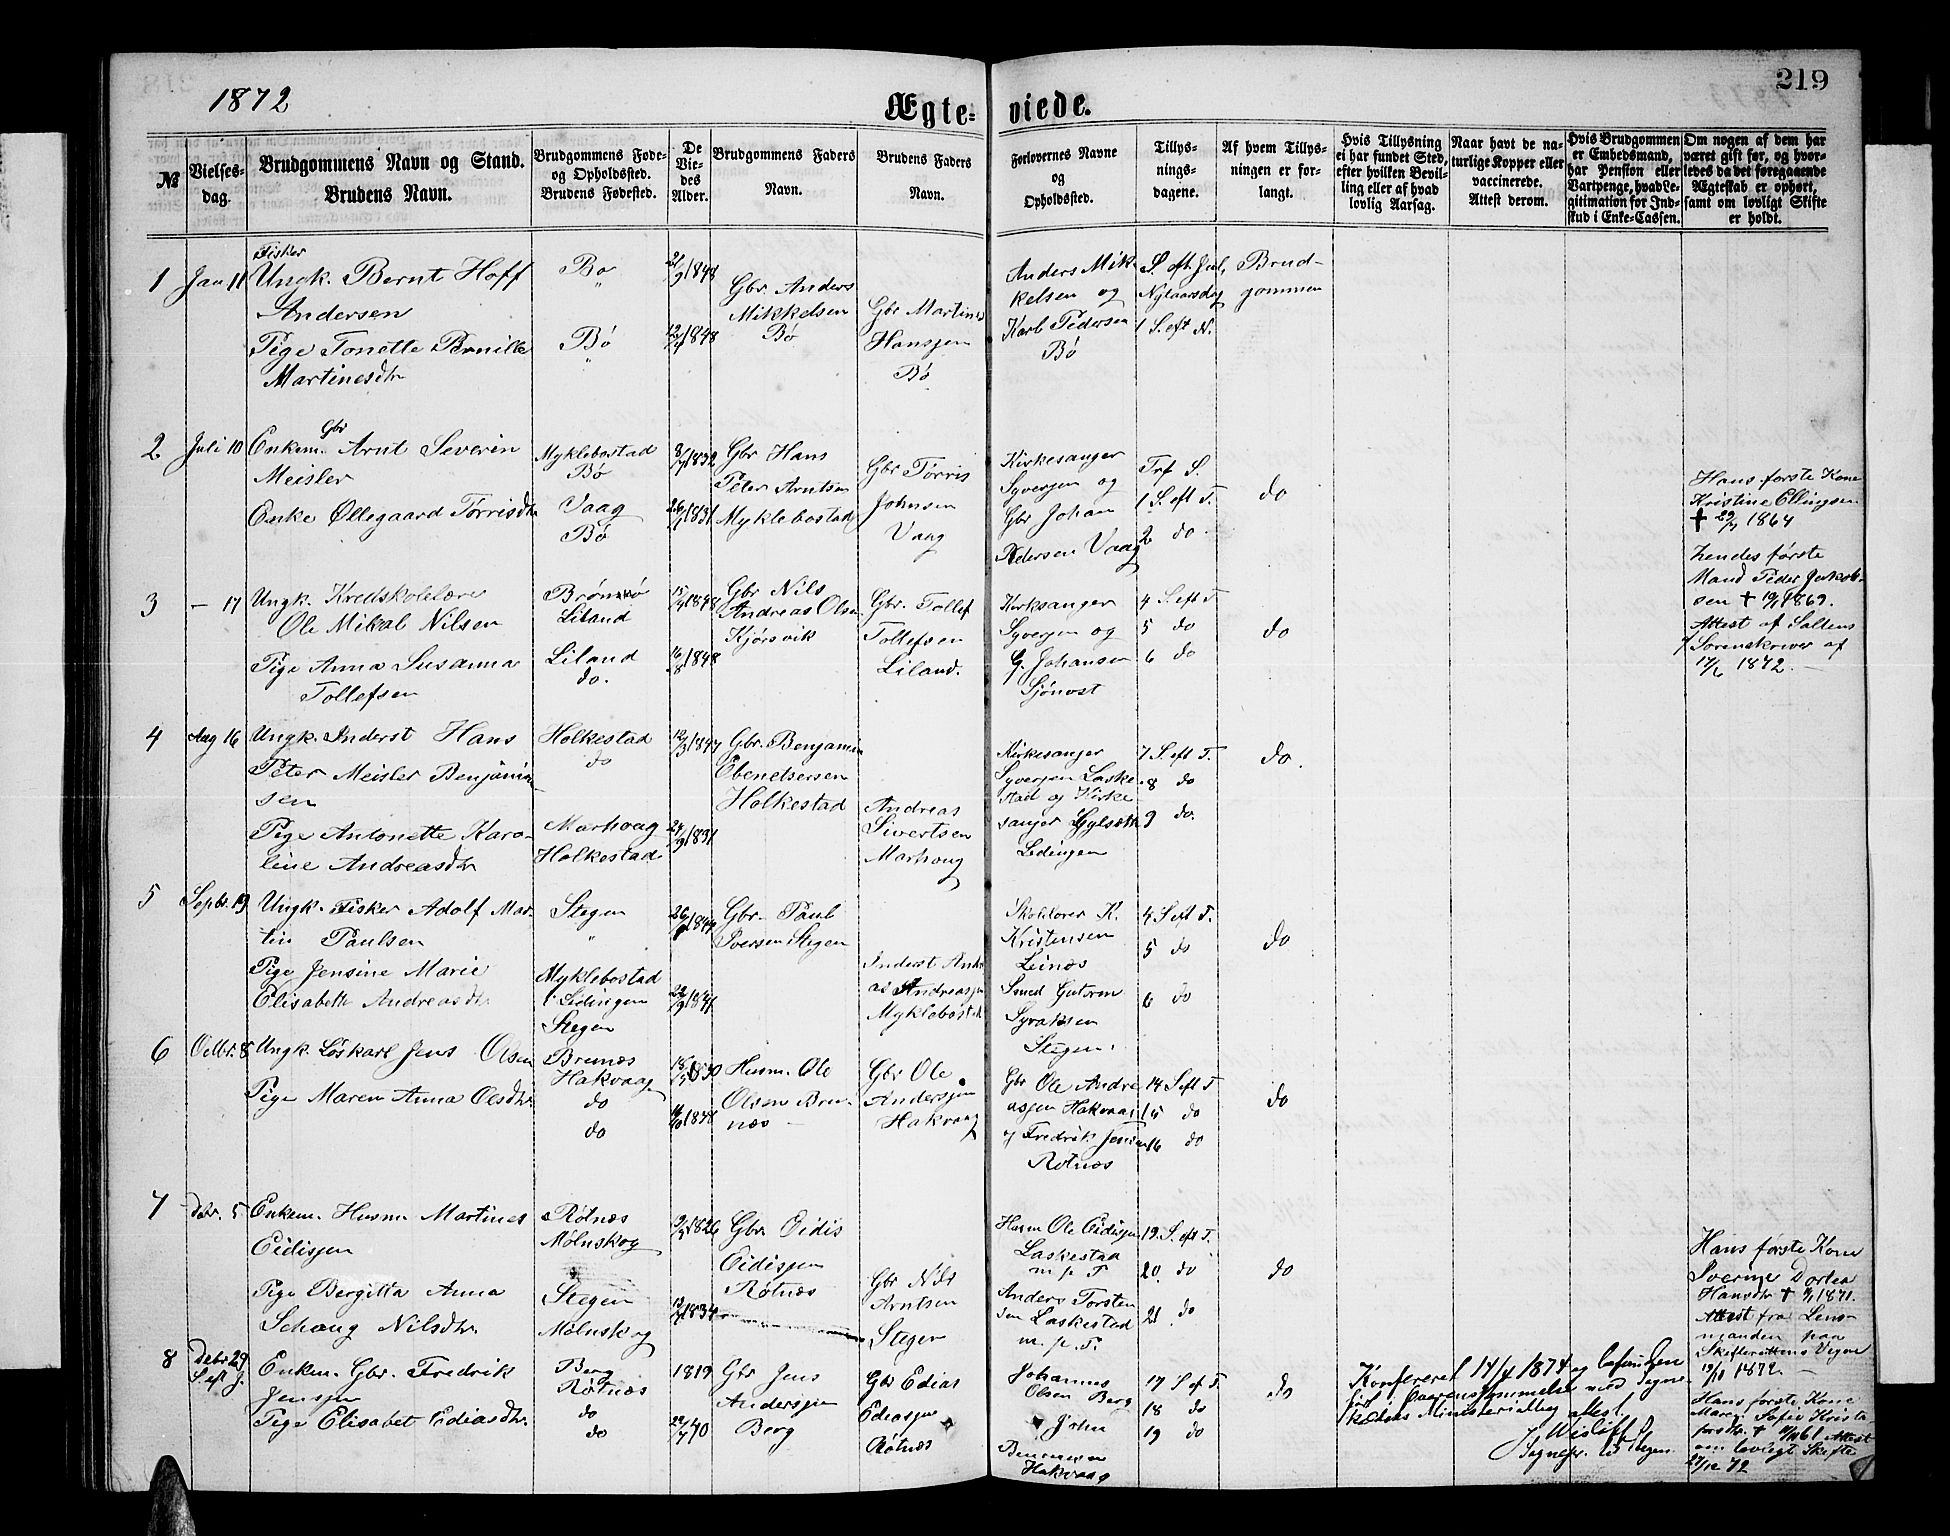 1872
Ægte-viede.
219
№
Vielses-dag.
Brudgommens Navn og Stand.
Brudens Navn.
Brudgommens Føde-
og Opholdssted.
Brudens Fødested.
De
Vie-
des
Alder.
Brudgommens Faders
Navn.
Brudens Faders
Navn.
Forlovernes Navne
og
Opholdssted.
Tillys-
nings-
dagene.
Af hvem Tillys-
ningen er for-
langt.
Hvis Tillysning
ei har fundet Sted,
efter hvilken Bevil-
ling eller af hvad
lovlig Aarsag.
Naar havt de na-
turlige Kopper eller
vaccinerede.
Attest derom.
Hvis Brudgommen
er Embedsmand,
har Pension eller
Vartpenge, hvad Le-
gitimation for Ind-
skud i Enke-Cassen.
Om nogen af dem har
været gift før, og hvor-
ledes da det foregaaende
Ægteskab er ophørt,
samt om lovligt Skifte
er holdt.
1
Jan 11
Fisker
Ungk. Bernt Hoff
Andersen
Pige Tonette Pernille
Martinesdtr
Bø
"
Bø
"
21/9 1848
12/4 1848
Gbr. Anders
Mikkelsen
Bø
Gbr Martines
Hansjen
Bø
Anders Mik-
kelsen og
Karl Pedersen
Bø
S. eft. Jul,
Nytaarsdag
1 S. eft N.
Brud-
gommen
2
Juli 10
Gbr
Enkem. Arnt Severin
Meisler
Enke Øllegaard Tørrisdtr
Myklebostad
Bø
Vaag
Bø
8/7 1832
26/1 1831
Gbr Hans
Peter Arntsen
Myklebostad
Gbr Tørris
Johnsen
Vaag
Kirkesanger
Syversen og
Gbr Johan
Pedersen Vaag
Tref S.
1 S. eft T.
2 do
do
Hans første Kone
Kristine Ellingsen
† 29/7 1864
hendes første
Mand Peder Jakob-
sen † 19/1 1869.
Attest af Saltens
Sorenskriver af
17/6 1872.
3
- 17
Ungk. Kredsskolelærer
Ole Mikal Nilsen
Pige Anna Susanna
Tollefsen
Brønnø
Liland
Liland
do.
15/4 1848
16/8 1848
Gbr Nils
Andreas Olsen
Kjørsvik
Gbr. Tollef
Tollefsen
Liland.
Kirksanger
Syversen og
G. Johansen
Sjønost
4 S. eft T
5 do
6 do
do
4
Aug 16
Ungk. Inderst Hans
Peter Meisler Benjamin-
sen
Pige Antonette Karo-
line Andreasdtr
Holkestad
do
Marhaug
Holkestad
12/3 1847
24/9 1831
Gbr. Benjamin
Ebenetsersen
Holkestad
Andreas
Sivertsen
Marhaug
Kirkesanger
Syversen Laske
stad og Kirke
sanger Gylseth
Ledingen
7 S. eft T.
8 do
9 do.
do.
5
Septbr. 19
Ungk. Fisker Adolf Mar-
tin Paulsen
Pige Jensine Marie
Elisabeth Andreasdtr.
Stegen
"
Myklebostad
i Ledingen
Stegen
22/9 1847
Gbr. Paul
Iversen Stegen
Inderst Andre
as Andreasjen
Myklebostad
Skolelærer K.
Kristensen
Leinæs
Smed Gutorm
Syraksen
Stegen.
4 S. eft T.
5 do
6 do
do
6
Octbr. 8
Ungk. Løskarl Jens Olsen
Pige Maren Anna Olsdtr.
Brunæs
Hakvaag
do
do
14/10 1848
Husm. Ole
Olsen Bru-
næs
Gbr Ole
Andersjen
Hakvaag
Gbr Ole Andre
asjen Hakvaag
og Fredrik Jensen
Røtnæs
14 S. eft T
15 do
16 do
do
7
Debr. 5
Enkem. Husm Martines
Eidisjen
Pige Bergitta Anna
Schaug Nilsdtr.
Røtnæs
Mølnskog
Stegen
Mølnskog
9/5 1826
Gbr Eidis
Eidisjen
Røtnæs
Gbr Nils
Arntsen
Stegen
Husm Ole Eidisjen
Laskestad
m. p. P
Anders Torsten
sen Laskestad
m. p. P.
19. S. eft T.
20 do
21 do
do
Hans første Kone
Sverine Dortea
Hansdtr † 9/1 1871.
Attest fra Lens-
manden paa
Skifterettens Vegne
19/11 1872.
8
Debr. 29
S eft J.
Enkem. Gbr. Fredrik
Jensjen
Pige Elisabet Ediasdtr.
Berg
Røtnæs
do
do
1819
22/7 40
Gbr Jens
Andersjen
Berg
Gbr Edias
Ediasjen
Røtnæs
Johannes
Olsen Berg
John
Hakvaag
17 S. ef T.
18 do
19 do
do
Konfereret 14/4 1874 og befunden
i Overensstemmelse med Sogne-
kaldets Ministerialbog attest.
Wisløff
Sognepr. til Stegen
Hans første Kone
Maren Sofie Krista-
forsdtr. † 61. Attest
om lovligt Skifte
27/12 72